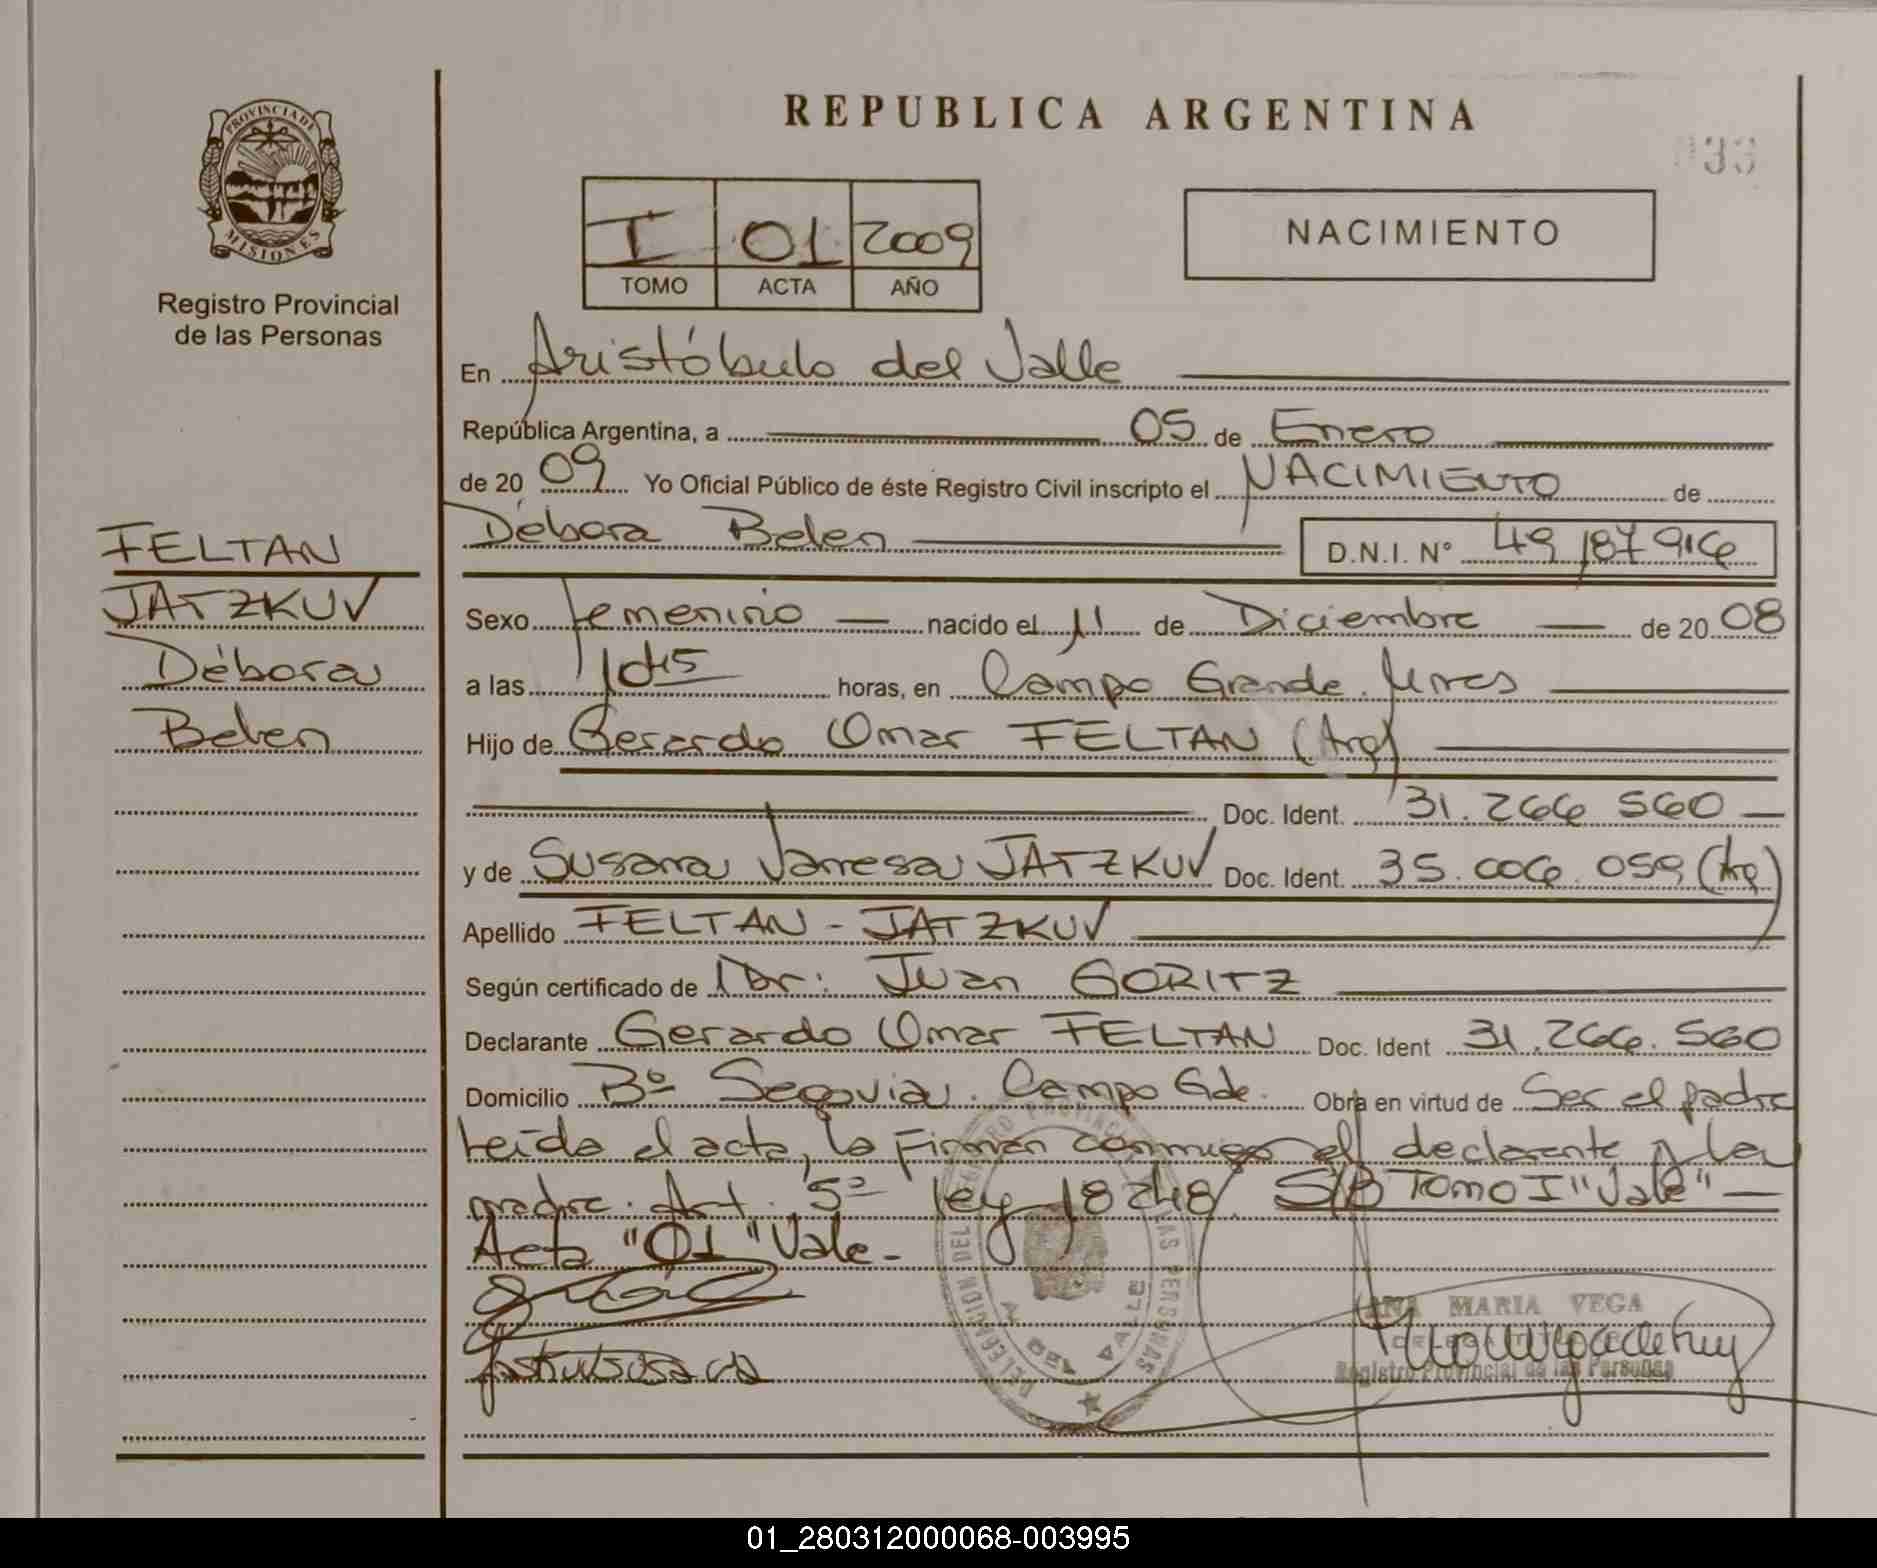 REPUBLICA ARGENTINA
033
PROVINCIA DE MISIONES
Registro Provincial
de las Personas
I 01 2009
TOMO ACTA AÑO
NACIMIENTO
En Aristóbulo del Valle
República Argentina, a 05 de Enero
de 20 09 Yo Oficial Público de éste Registro Civil inscripto el NACIMIENTO de
Débora Belen D.N.I. Nº 49 187 916
FELTAN
JATZKUV
Débora
Belen
Sexo Femenino nacido el 11 de Diciembre de 20 08
a las horas, en Campo Grande. Mnes
Hijo de Gerardo Omar FELTAN (Arg)
Doc. Ident. 31.266 560
y de Susana Vanesa JATZKUV Doc. Ident. 35.006.059 (Arg)
Apellido FELTAN - JATZKUV
Según certificado de Dr: Juan GORITZ
Declarante Gerardo Omar FELTAN Doc. Ident 31.266.560
Domicilio Bº Segovia. Campo Gde. Obra en virtud de Ser el padre
Leída el acta, la Firman conmigo el declarante y la
madre. Art. 5º ley 18248. S/B Tomo I "Vale"
Acta "01" Vale-
ANA MARIA VEGA
Registro Provincial de las Personas
DELEGACION DEL REGISTRO PROVINCIAL DE LAS PERSONAS
VALLE
01_280312000068-003995